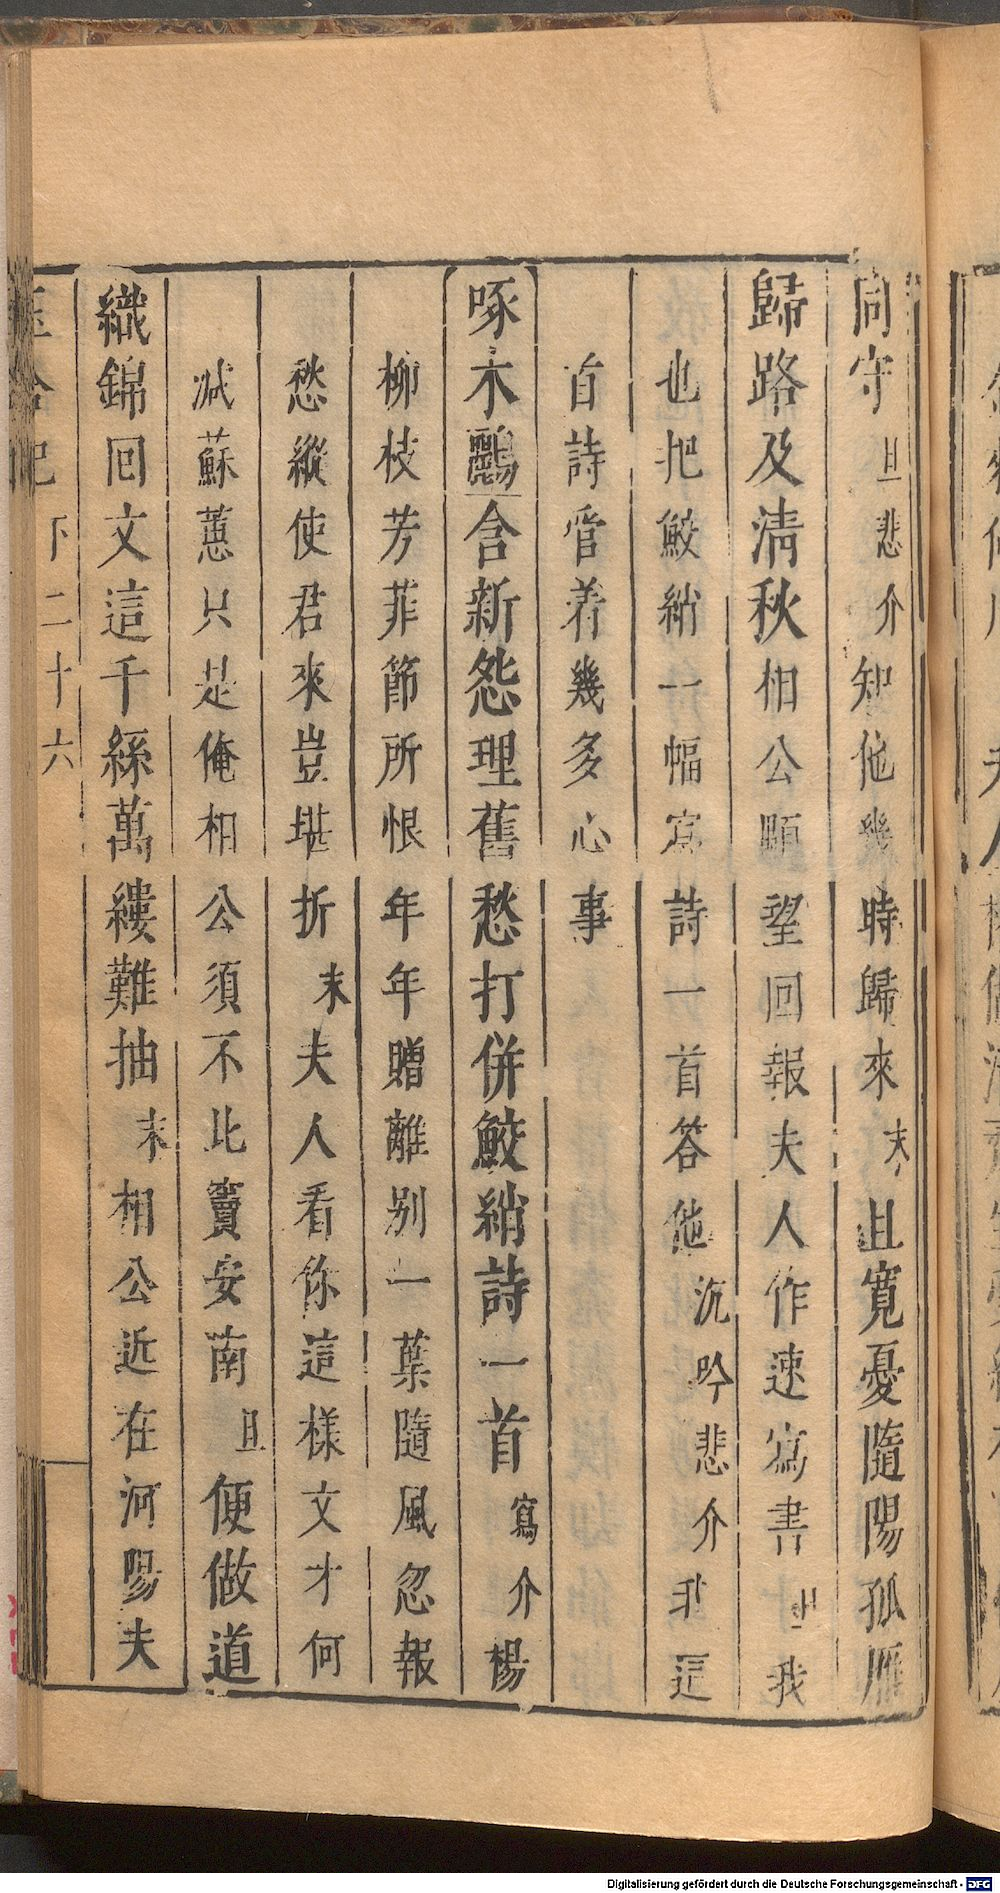 同守旦悲介知他幾時歸來末且寬憂隨陽孤雁
歸路及淸秋相公願望回報夫人作速寫書旦我
也把鮫綃一幅寫詩一首答他沉吟悲介我這
首詩管着幾多心事
啄木鸝含新怨理舊愁打併鮫綃詩一首寫介楊
柳枝芳菲節所恨年年贈離別一葉隨風忽報
愁縱使君來豈堪折末夫人看你這樣文才何
减蘇蕙只是俺相公須不比竇安南旦便做道
織錦回文這千絲萬縷難抽末相公近在河陽夫
玉合記 下二十六
Digitalisierung gefördert durch die Deutsche Forschungsgemeinschaft - DFG